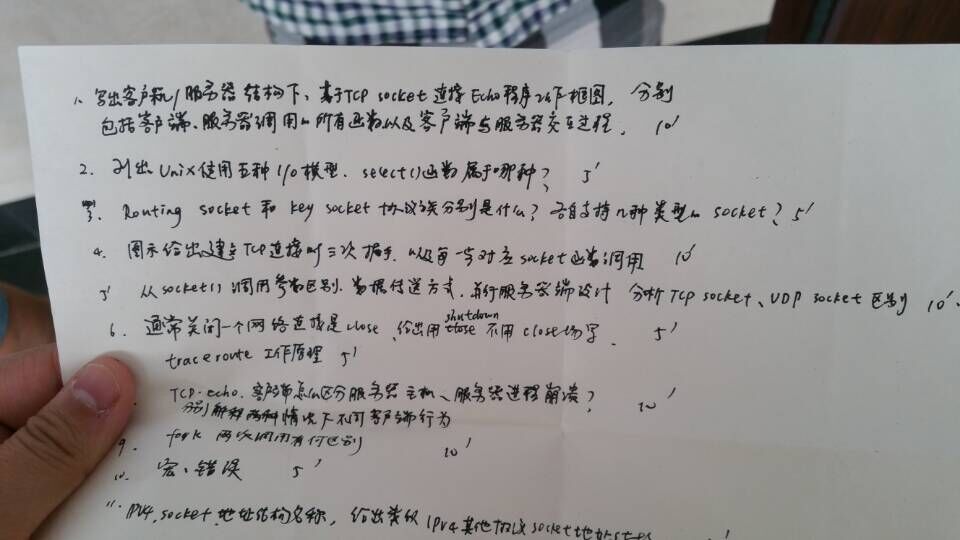 1、写出客户机/服务器结构下、基于TCP socket 连接 Echo程序工作框图, 分别
包括客户端、服务器调用的所有函数以及客户端与服务器交互过程. 10'
2. 列出 Unix使用五种 I/O 模型. select()函数属于哪种? 5'
3. Routing socket 和 key socket 协议族分别是什么? 各自支持几种类型的 socket? 5'
4. 图示给出建立TCP连接时三次握手. 以及每一步对应socket函数调用 10'
5' 从socket()调用参数区别、数据传送方式、并行服务器端设计 分析TCP socket、UDP socket区别 10'.
6. 通常关闭一个网络连接是close, 给出用 shutdown 不用close场景. 5'
traceroute 工作原理 5'
TCP·echo. 客户端怎么区分服务器主机、服务器进程崩溃? 10'
分别解释两种情况下不同客户端行为
9. fork 两次调用有何区别 10'
10. 宏、错误 5'
11. IPV4, socket 地址结构名称, 给出类似 IPv4 其他协议 socket 地址